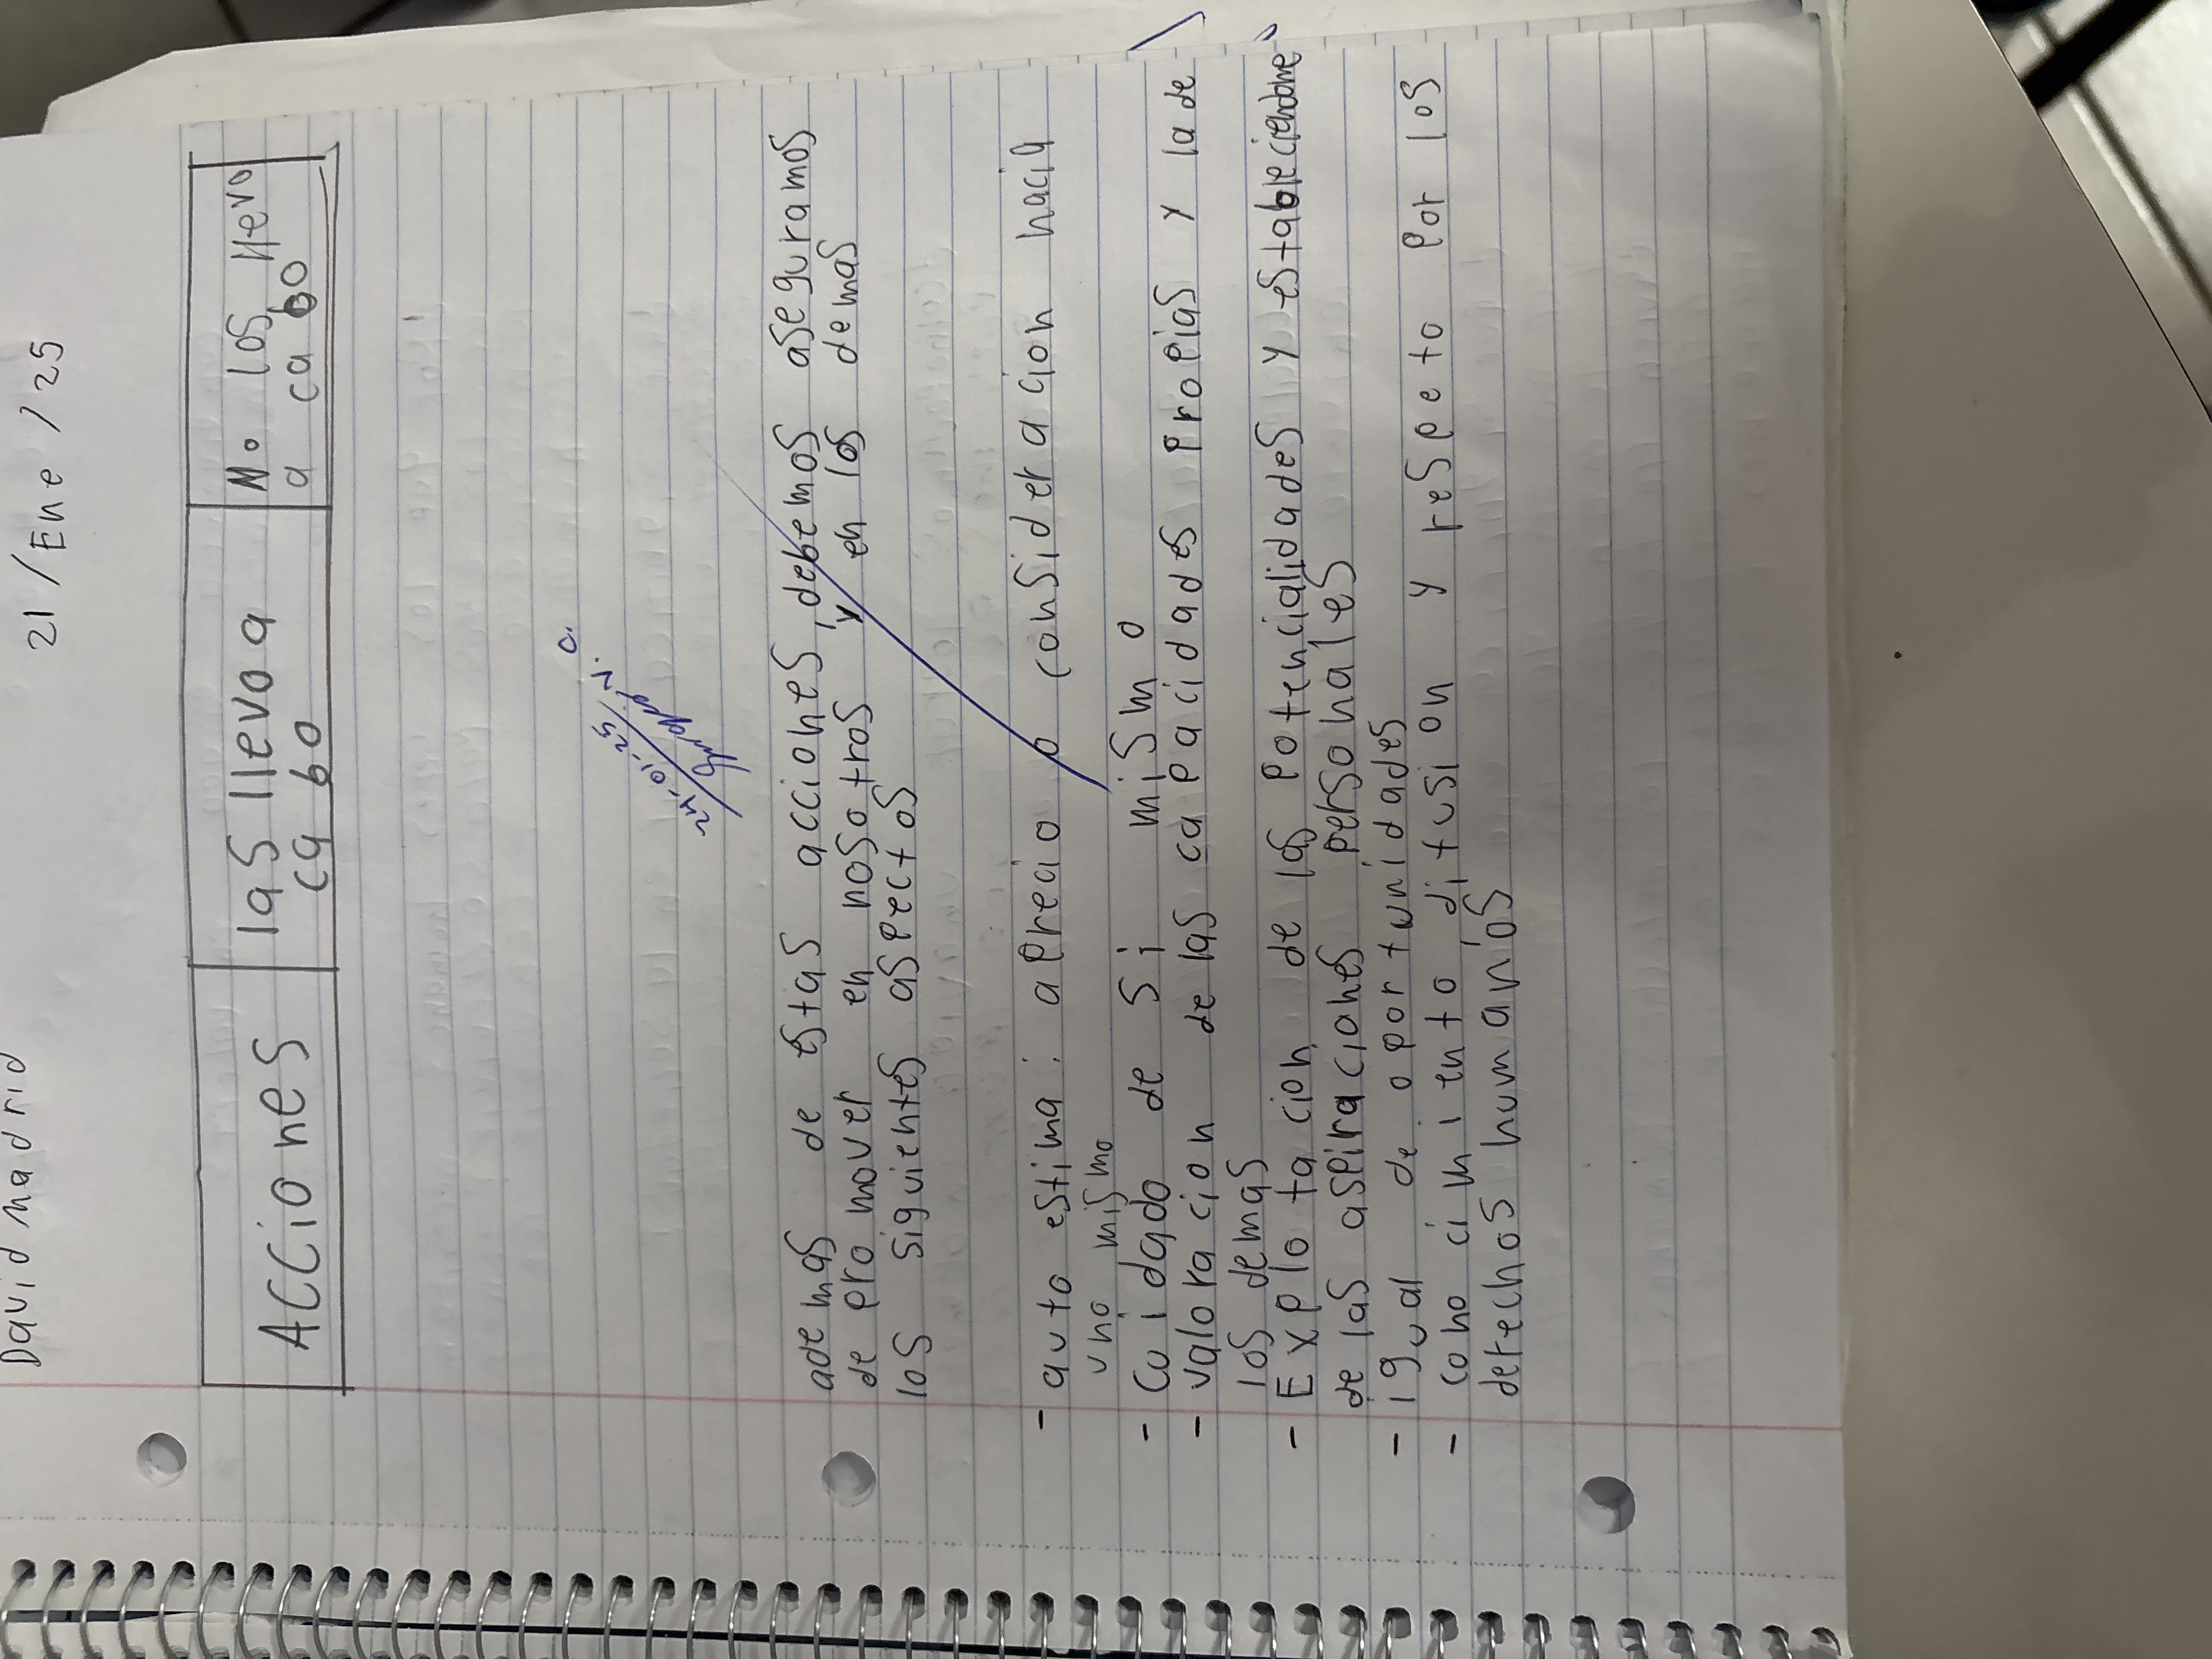 David madrid 21/Ene/25
Acciones las llevo a No los llevo
cabo a cabo
24.01.25/N.C.
ademas de estas acciones, debemos aseguramos
de promover en nosotros y en los demas
los siguientes aspectos
- auto estima: aprecio o consideracion hacia
uno mismo
- Cuidado de si mismo
- valoracion de las capacidades propias y la de
los demas
- Explotacion de las potencialidades y estableciendome
de las aspiraciones personales
- igual de oportunidades
- conocimiento, difusion y respeto por los
derechos humanos